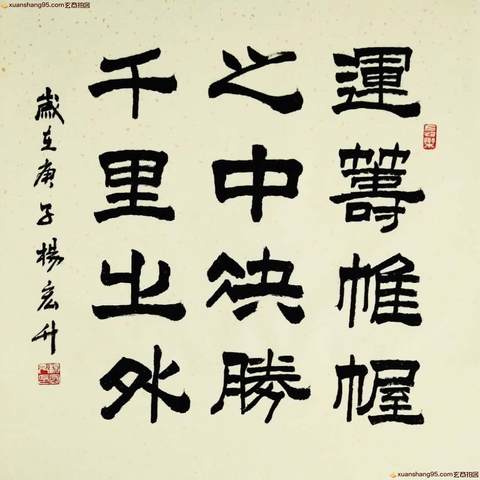 xuanshang95.com 玄商拍图
運籌帷幄
之中決勝
千里之外
歲在庚子楊宏升
xuanshang95.com 玄商拍图